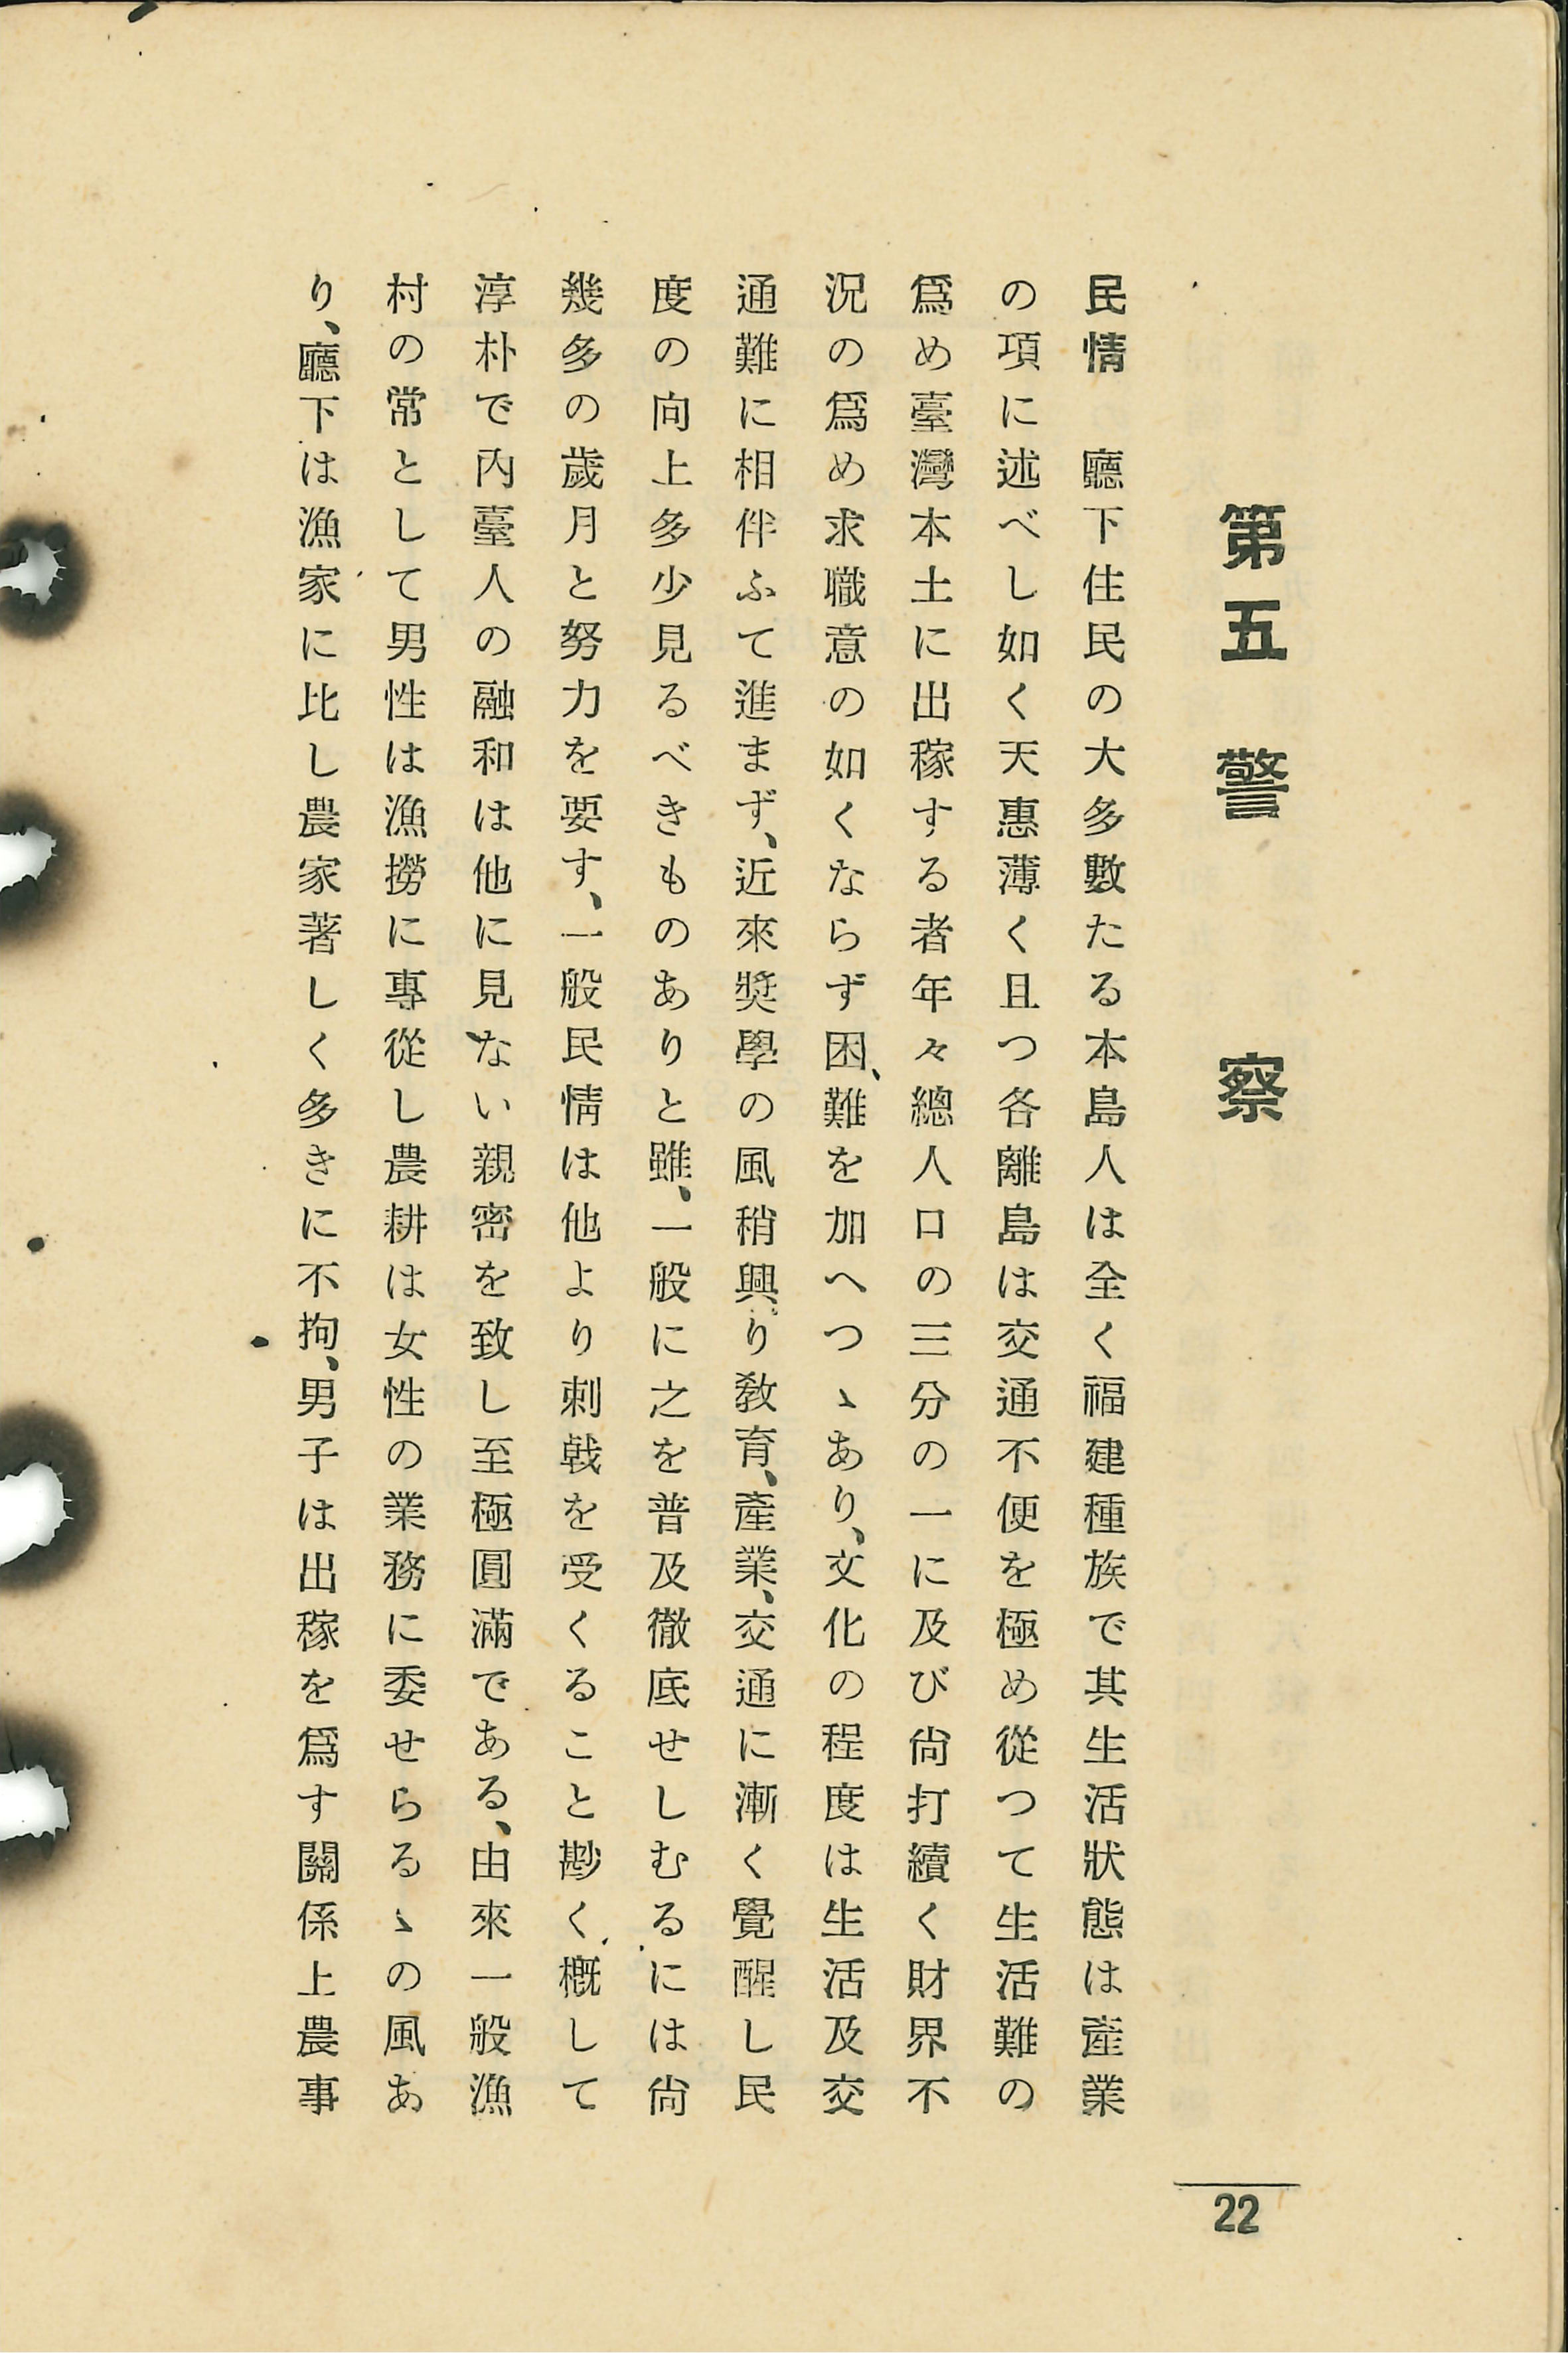 第五 警察
民情　廳下住民の大多數たる本島人は全く福建種族で其生活狀態は產業
の項に述べし如く天惠薄く且つ各離島は交通不便を極め從つて生活難の
爲め臺灣本土に出稼する者年々總人口の三分の一に及び尙打續く財界不
況の爲め求職意の如くならず困、難を加へつゝあり、文化の程度は生活及交
通難に相伴ふて進まず、近來奬學の風稍興り敎育、產業、交通に漸く覺醒し民
度の向上多少見るべきものありと雖、一般に之を普及徹底せしむるには尙
幾多の歲月と努力を要す、一般民情は他より刺戟を受くること尠く槪して
淳朴で內臺人の融和は他に見ない親密を致し至極圓滿である、由來一般漁
村の常として男性は漁撈に專從し農耕は女性の業務に委せらるゝの風あ
り、廳下は漁家に比し農家著しく多きに不拘、男子は出稼を爲す關係上農事
22